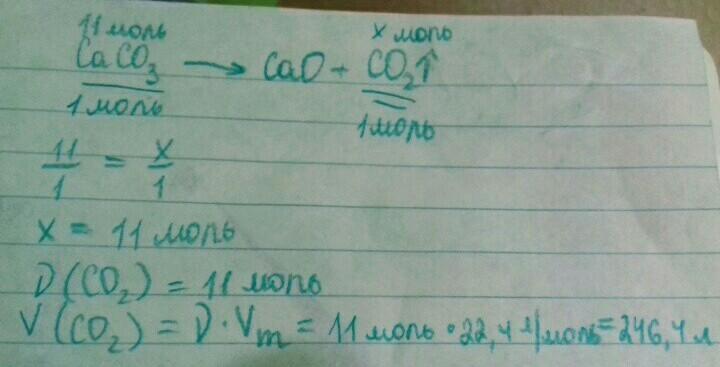 11 моль x моль
CaCO₃ → CaO + CO₂↑
1 моль 1 моль
11/1 = x/1
x = 11 моль
D(CO₂) = 11 моль
V(CO₂) = D · Vₘ = 11 моль • 22,4 л/моль = 246,4 л